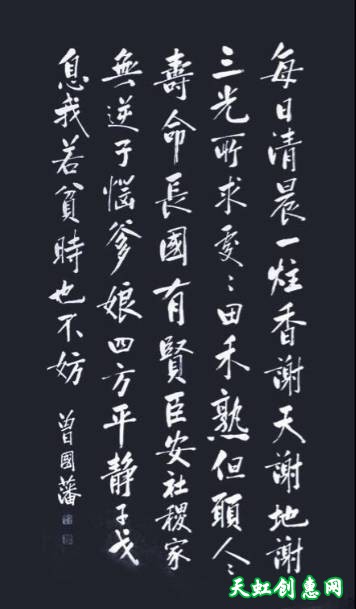 每日清晨一炷香謝天謝地謝
三光所求處〻田禾熟但願人〻
壽命長國有賢臣安社稷家
無逆子惱爹娘四方平靜干戈
息我若貧時也不妨
曾國藩
天虹创意网